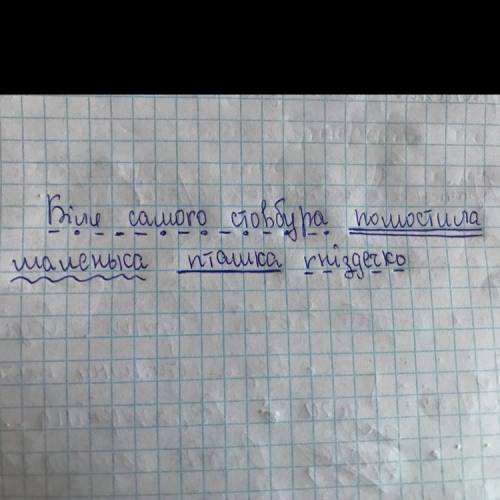 Біля самого стовбура помостила
маленька пташка гніздечко